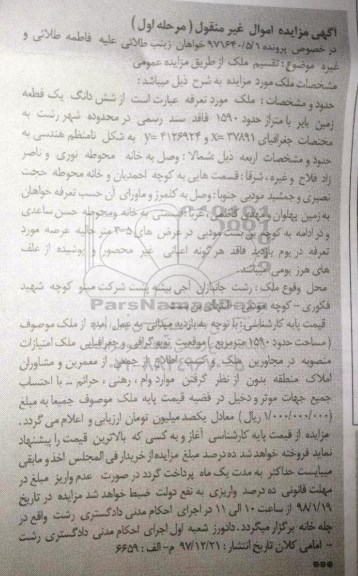 آگهی مزایده اموال غیر منقول ( مرحله اول )
در خصوص پرونده ۹۷۱۶۴۰/۵/۱ خواهان زینب طالائی علیه فاطمه طالائی و
غیره موضوع : تقسیم ملک از طریق مزایده عمومی
مشخصات ملک مورد مزایده به شرح ذیل میباشد :
حدود و مشخصات : ملک مورد تعرفه عبارت است از شش دانگ یک قطعه
زمین بایر با متراژ حدود ۱۵۹۰ فاقد سند رسمی در محدوده شهر رشت به
مختصات جغرافیای x= ۳۷۸۹۱ و y= ۴۱۲۶۹۲۴ و به شکل نامنظم هندسی به
حدود و مشخصات اربعه ذیل شمالا : وصل به خانه محوطه نوری و ناصر
زاد فلاح و غیره ، شرقا : قسمت هایی به کوچه احمدیان و خانه محوطه حجت
نصیری و جمشید مودبی جنوبا : وصل به کلمرز و ماورای آن حسب تعرفه خواهان
به زمین پهلوان و مهدی غربا : قسمتی به خانه ومحوطه حسن ساعدی
و در ادامه به کوچه بن بست مودبی در عرض های ۵-۴ متر حالیه عرصه مورد
تعرفه در یوم بازدید فاقد هر گونه اعیانی غیر محصور و پوشیده از علف
های هرز بومی میباشد.
محل وقوع ملک : رشت جانبازان آجی بیشه پشت شرکت مینو کوچه شهید
فکوری – کوچه مودبی –
قیمت پایه کارشناسی : با توجه به بازدید میدانی به عمل آمده از ملک موصوف
( مساحت حدود ۱۵۹۰ مترمربع ) موقعیت توپوگرافی و جغرافیایی ملک امتیازات
منصوبه در مجاورین ملک و کسب اطلاع از جمعی از معمرین و مشاوران
املاک منطقه بدون از نظر گرفتن موارد وام ، رهنی ، حرائم .. با احتساب
جمیع جهات موثر و دخیل در قضیه قیمت پایه ملک موصوف جمیعا به مبلغ
(۱/۰۰۰/۰۰۰/۰۰۰ ریال ) معادل یکصد میلیون تومان ارزیابی و اعلام می گردد .
مزایده از قیمت پایه کارشناسی آغاز و به کسی که بالاترین قیمت را پیشنهاد
نماید فروخته خواهد شد ده درصد مبلغ مزایده از خریدار فی المجلس اخذ و مابقی
میبایست حداکثر به مدت یک ماه پرداخت گردد در صورت عدم واریز مبلغ در
مهلت قانونی ده درصد واریزی به نفع دولت ضبط خواهد شد مزایده در تاریخ
۹۸/۱/۱۹ از ساعت ۱۰ الی ۱۱ در اجرای احکام مدنی دادگستری رشت واقع در
چله خانه برگزار میگردد . دادورز شعبه اول اجرای احکام مدنی دادگستری رشت
– امامی کلان تاریخ انتشار : ۹۷/۱۲/۲۱ م- الف : ۶۶۵۹